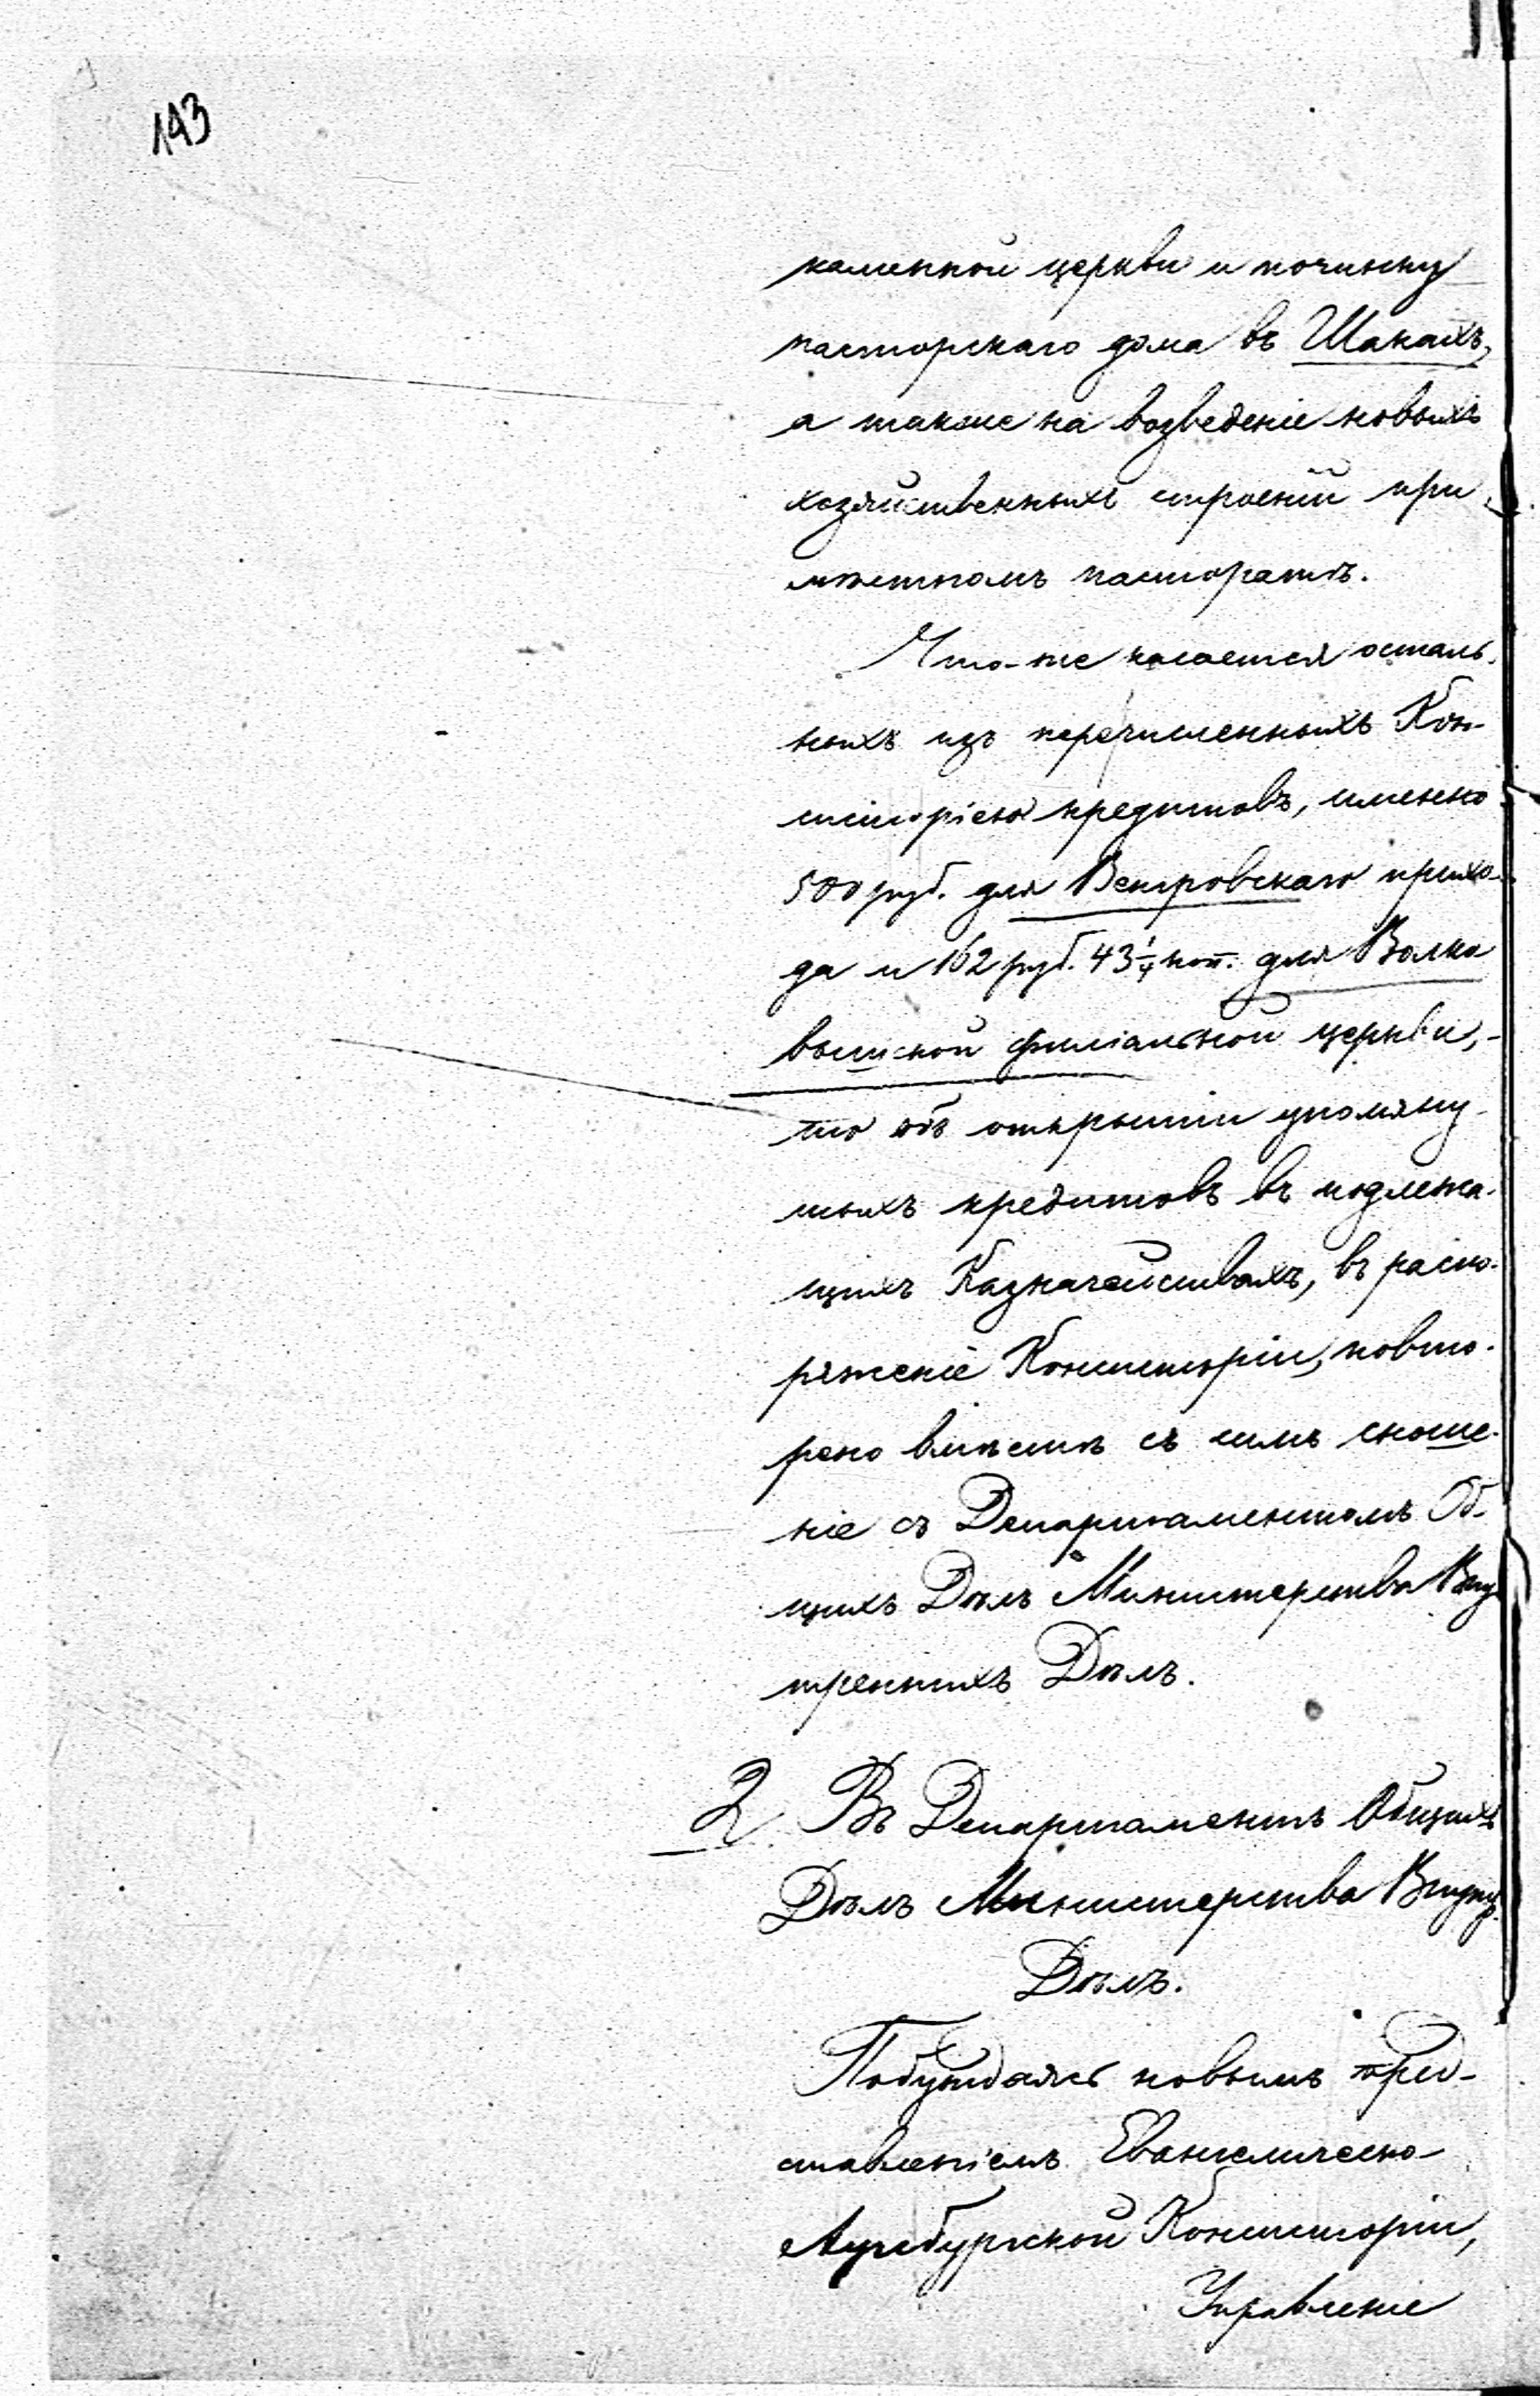 143
каменной церкви и починку
пасторскаго дома въ Шакахъ,
а также на возведеніе новыхъ
хозяйственныхъ строеній при
мѣстномъ пасторатѣ.
Что-же касается осталь-
ныхъ изъ перечисленныхъ Кон-
систоріею кредитовъ, именно
500 руб. для Венгровскаго прихо-
да и 162 руб. 43 1/4 коп. для Волко
вышской филіальной церкви,-
то объ открытіи упомяну-
тыхъ кредитовъ въ подлежа-
щихъ Казначействахъ, въ распо-
ряженіе Консисторіи, повто-
рено вмѣстѣ съ симъ сноше-
ніе съ Департаментомъ Об-
щихъ Дѣлъ Министерства Вну-
треннихъ Дѣлъ.
2. Въ Департаментъ Общихъ
Дѣлъ Министерства Внутр.
Дѣлъ.
Побуждаясь новымъ пред-
ставленіемъ Евангелическо-
Аугсбургской Консисторіи,
Управленіе